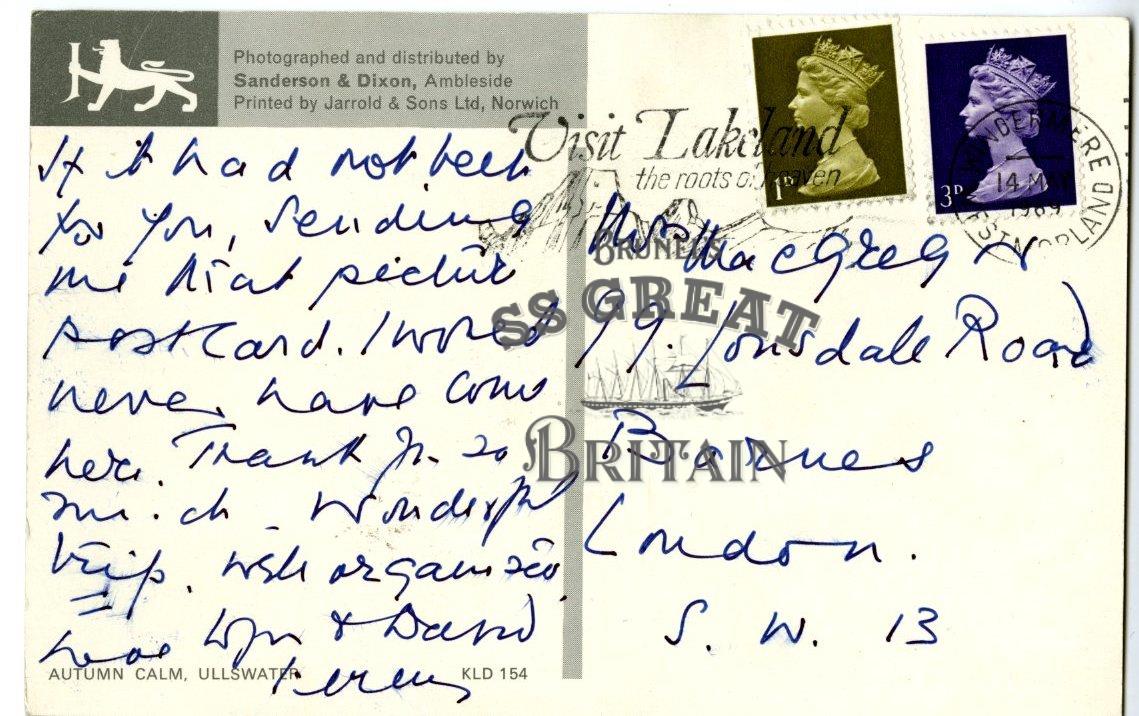 Photographed and distributed by
Sanderson & Dixon, Ambleside
Printed by Jarrold & Sons Ltd, Norwich
If it had not been
for you, sending
me that picture
postcard. I would
never have come
here. Thank you so
much. Wonderful
trip. well organised
love Wyn & David
AUTUMN CALM, ULLSWATER
KLD 154
Visit Lakeland
the roots of heaven
1D
3D
WINDERMERE
14 MAY
1969
WESTMORLAND
Mrs MacGregor
99. Lonsdale Road
Barnes
London.
S. W. 13
BRUNEL'S
SS GREAT
BRITAIN